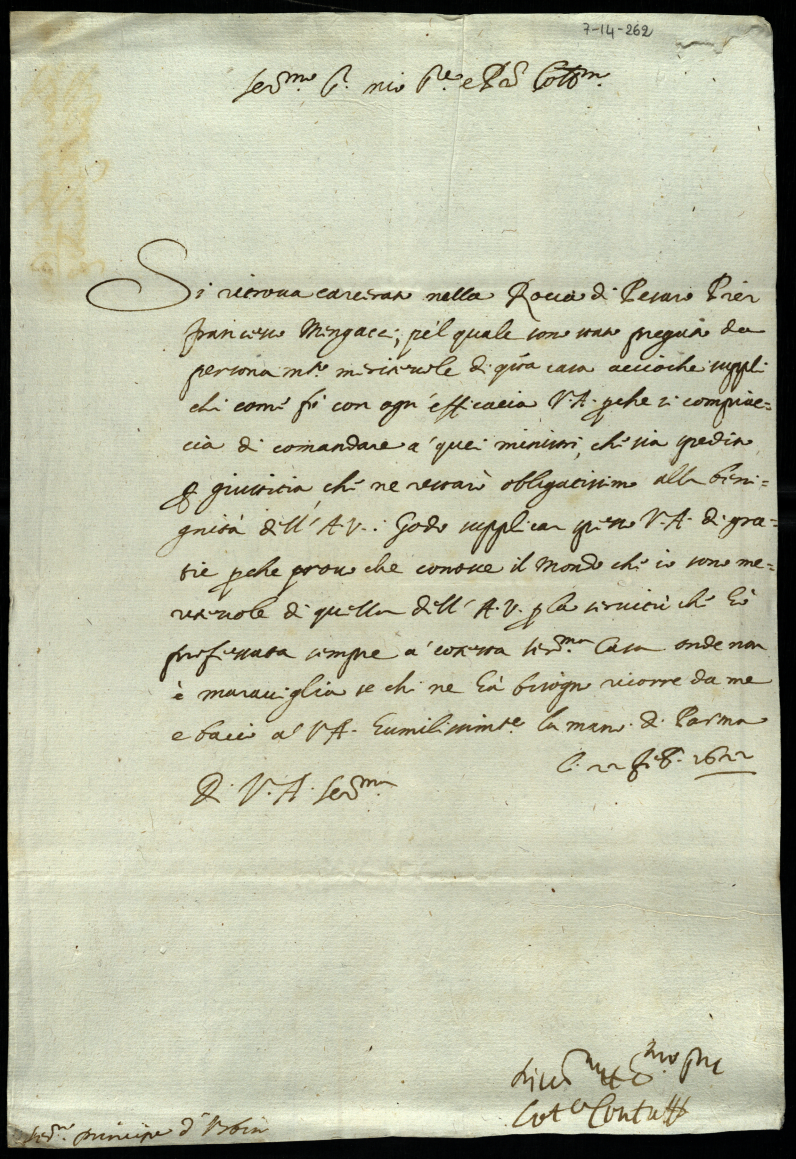 7-14-262
Ser.mo S.r mio S.re e P.rone Col.mo
Si ritroua carcerato nella Rocca di Pesaro Pier
francesco Mengacci, p el quale sono stato pregato da
persona m.to meriteuole di q.sta casa accioche suppli
chi come fò con ogn' efficacia V.A. p che si compiac=
cia di comandare a' quei ministri, che sia spedito
p giustitia che ne restarò obligatissimo alla beni=
gnità dell' A.V.: Godo supplicar spesso V.A. di gra=
tie p che prouo che conosce il Mondo che io sono me=
riteuole di quella dell' A.V. p la seruitù che hò
professata sempre a' cotesta Ser.ma Casa onde non
è marauiglia se chi ne hà bisogno ricorre da me
e bacio a' V.A. humilissimte la mano. di Parma
li 22 feb. 1622
D. V. A. Ser.ma
Ser.mo principe d' Vrbino